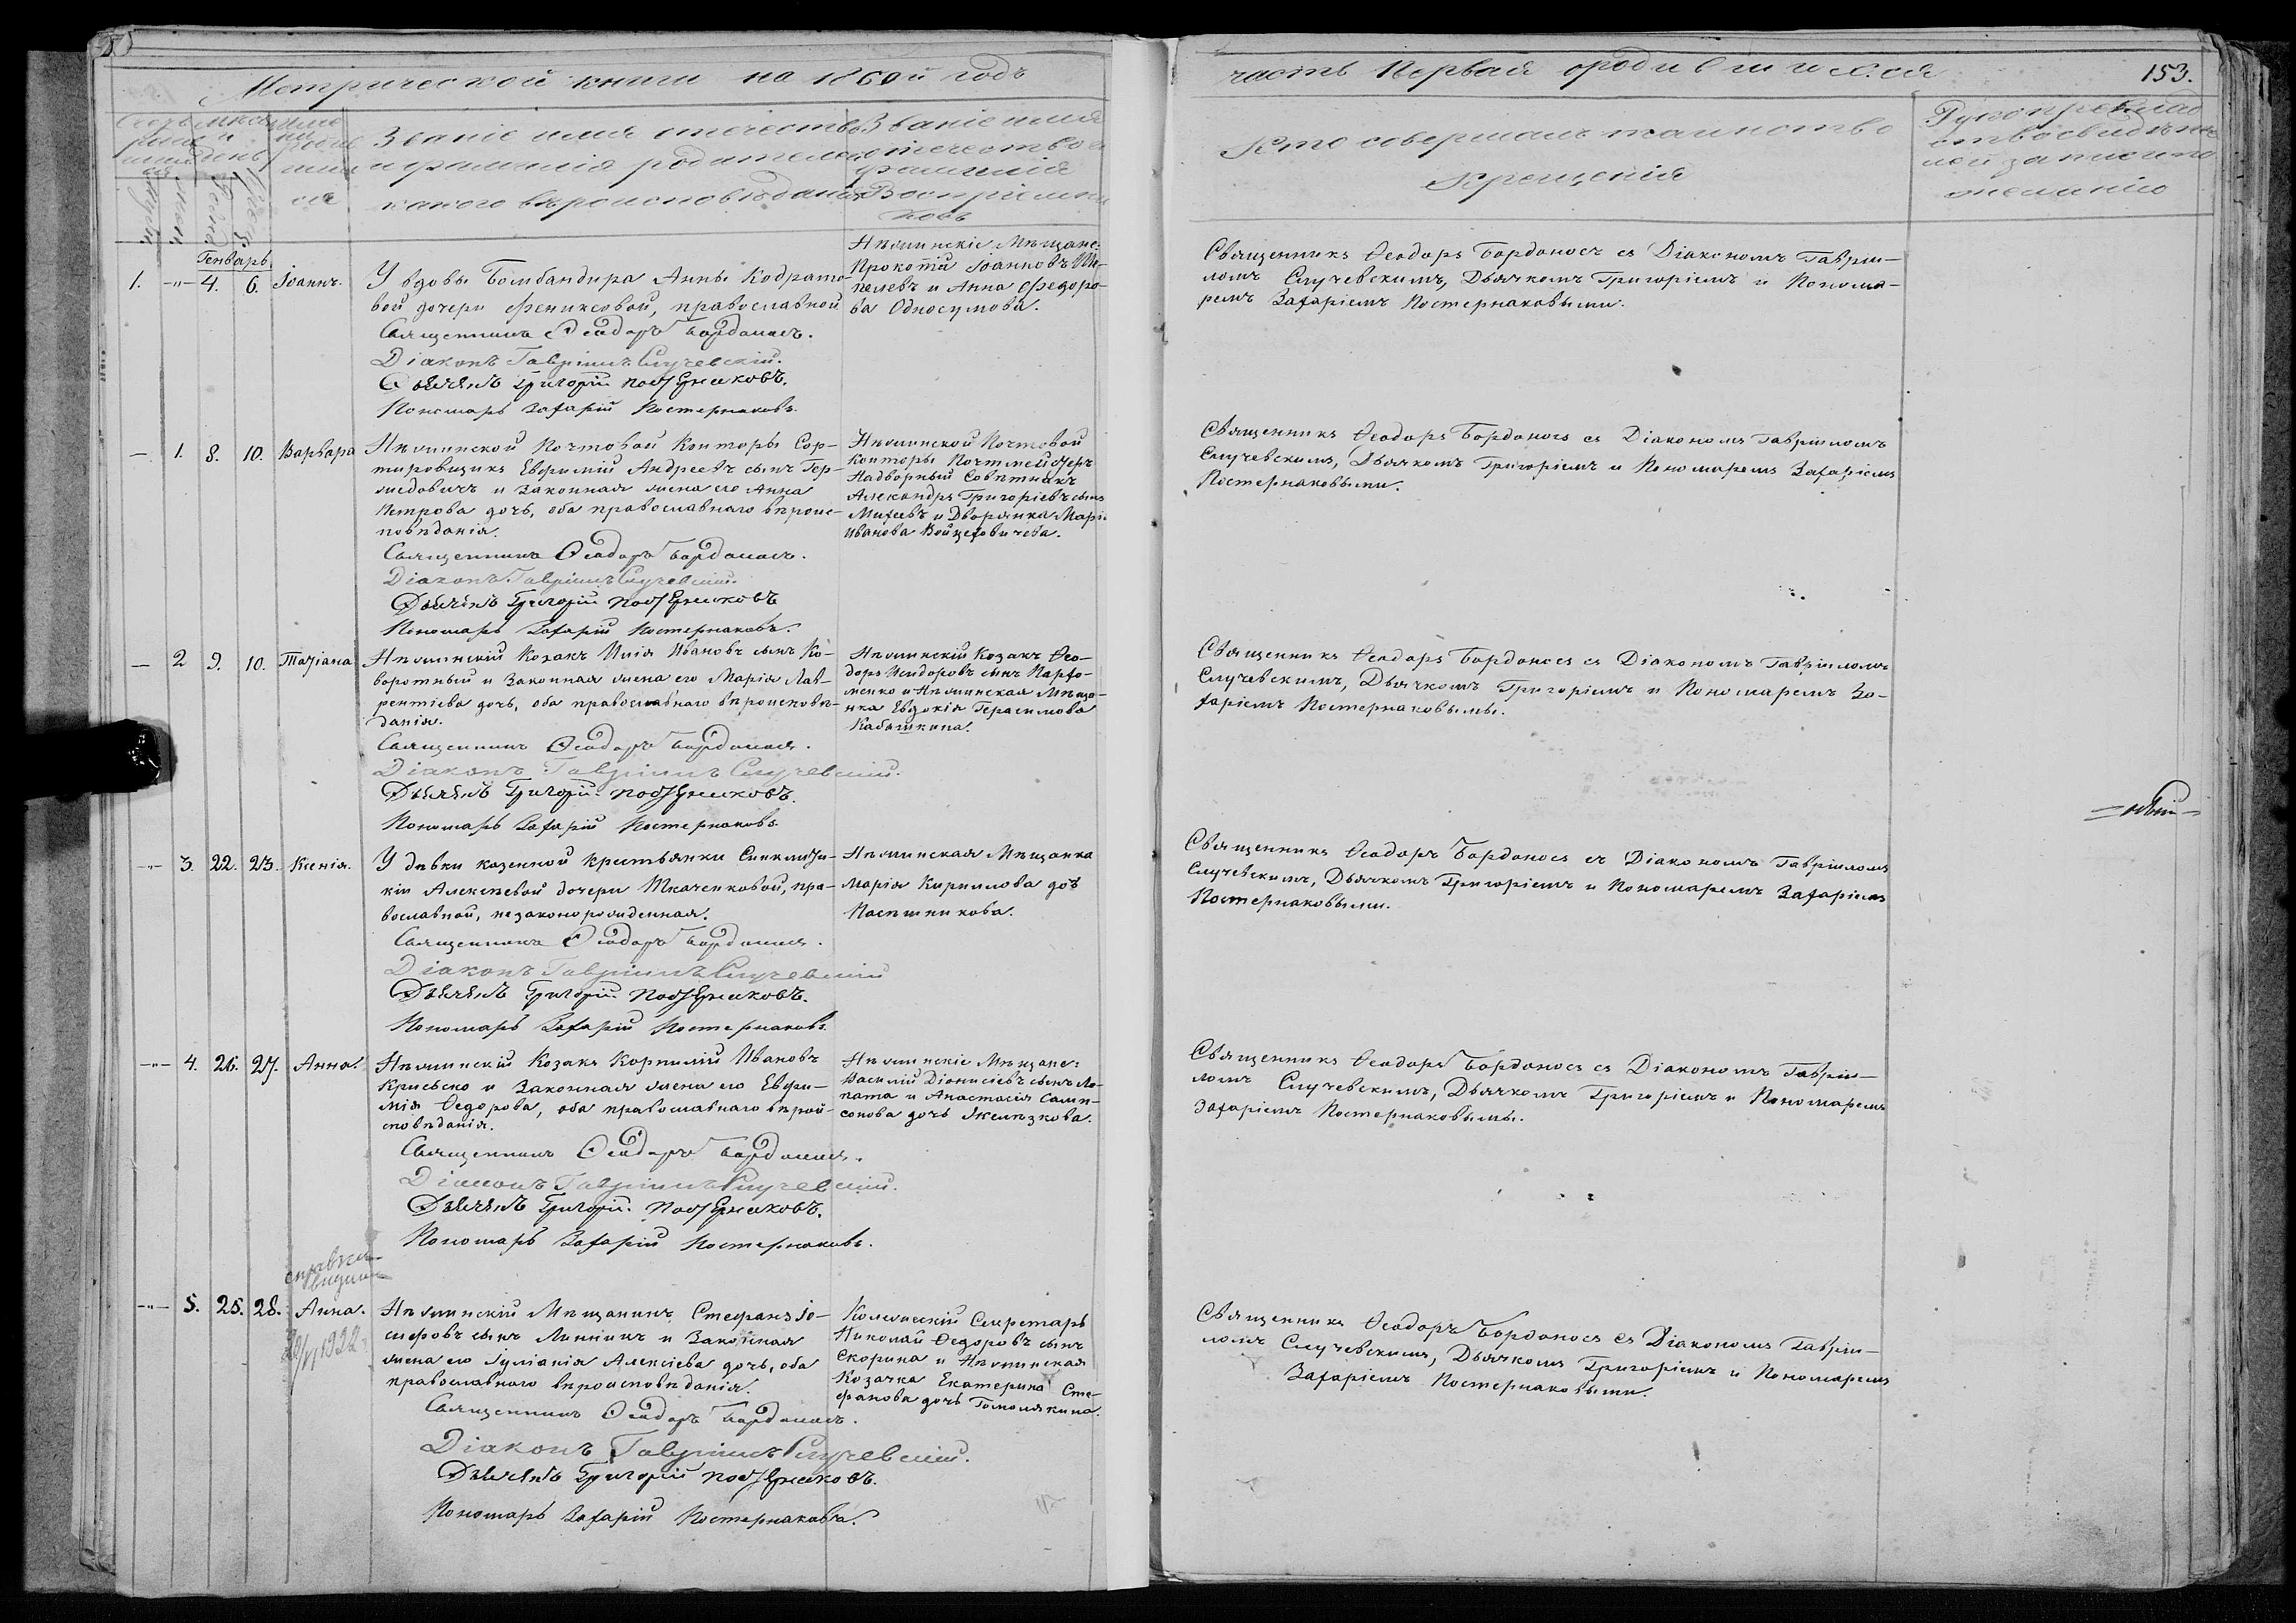 Метрической книги на 1860й годъ
часть первая о родившихся
153.
Званіе имя отечество
и фамилія родителей
какого вѣроисповѣданія
Званіе имя
отечество и
фамилія
Воспріемни
ковъ
Кто совершалъ таинство
Крещенія
Рукоприклад
ство свидѣте
лей записи по
желанію
Генварь
1. -"- 4. 6. Іоаннъ.
У вдовы Бомбандира Анны Кодрато
вой дочери Фениксовой, православной
Священникъ Ѳеодоръ Бордоносъ.
Діаконъ Гавріилъ Случевскій.
Дьячекъ Григорій Постернаковъ.
Пономарь Захарій Постернаковъ.
Нѣжинскіе Мѣщане:
Прокопій Іоанновъ
пелевъ и Анна Федоро-
ва Односумова.
Священникъ Ѳеодоръ Бордоносъ съ Діакономъ Гавріи-
ломъ Случевскимъ, Дьячкомъ Григоріемъ и Понома-
ремъ Захаріемъ Постернаковыми.
— 1. 8. 10. Варвара
Нѣжинской Почтовой Конторы Сор-
тировщикъ Евфимій Андреевъ сынъ Гер-
жедовичъ и Законная жена его Анна
Петрова дочь, оба православнаго вѣроис-
повѣданія.
Священникъ Ѳеодоръ Бордоносъ.
Діаконъ Гавріилъ Случевскій.
Дьячекъ Григорій Постернаковъ
Пономарь Захарій Постернаковъ.
Нѣжинской Почтовой
Конторы Почтмейстеръ
Надворный Совѣтникъ
Александръ Григорьевъ сынъ
Михеевъ и Дворянка Марія
Иванова Войцеховичева.
Священникъ Ѳеодоръ Бордоносъ съ Діакономъ Гавріиломъ
Случевскимъ, Дьячкомъ Григоріемъ и Пономаремъ Захаріемъ
Постернаковыми.
— 2 9. 10. Татіана
Нѣжинскій Козакъ Илія Ивановъ сынъ Ко-
воротный и Законная жена его Марія Лав-
рентіева дочь, оба православнаго вѣроисповѣ-
данія.
Священникъ Ѳеодоръ Бордоносъ.
Діаконъ Гавріилъ Случевскій.
Дьячекъ Григорій Постернаковъ.
Пономарь Захарій Постернаковъ.
Нѣжинскій Козакъ Ѳео-
доръ Исидоровъ сынъ Парфо-
менко и Нѣжинская Мѣща-
нка Евдокія Герасимова
Кабашкина.
Священникъ Ѳеодоръ Бордоносъ съ Діакономъ Гавріиломъ
Случевскимъ, Дьячкомъ Григоріемъ и Пономаремъ За-
харіемъ Постернаковымъ.
-"- 3. 22. 23. Ксенія.
У дѣвки казенной крестьянки Синклити-
кіи Алексѣевой дочери Ткаченковой, пра-
вославной, незаконорожденная.
Священникъ Ѳеодоръ Бордоносъ.
Діаконъ Гавріилъ Случевскій
Дьячекъ Григорій Постернаковъ.
Пономарь Захарій Постернаковъ.
Нѣжинская Мѣщанка
Марія Кирилова доч
Пасѣшникова.
Священникъ Ѳеодоръ Бордоносъ съ Діакономъ Гавріиломъ
Случевскимъ, Дьячкомъ Григоріемъ и Пономаремъ Захаріемъ
Постернаковыми.
-"- 4. 26. 27. Анна.
Нѣжинскій Козакъ Корнилій Ивановъ
Крисько и Законная жена его Евфи-
мія Ѳедорова, оба православнаго вѣрои-
сповѣданія.
Священникъ Ѳеодоръ Бордоносъ.
Діаконъ Гавріилъ Случевскій.
Дьячекъ Григорій Постернаковъ.
Пономарь Захарій Постернаковъ.
Нѣжинскіе Мѣщане:
Василій Діонисіевъ сынъ Ло-
пата и Анастасія Самп-
сонова дочь Желѣзкова.
Священникъ Ѳеодоръ Бордоносъ съ Діакономъ Гавріи-
ломъ Случевскимъ, Дьячкомъ Григоріемъ и Пономаремъ
Захаріемъ Постернаковымъ.
-"- 5. 25. 28. Анна.
1922
Нѣжинскій Мѣщанинъ Стефанъ Іо-
сифовъ сынъ Линникъ и Законная
жена его Іуліанія Алексіева дочь, оба
православнаго вѣроисповѣданія.
Священникъ Ѳеодоръ Бордоносъ.
Діаконъ Гавріилъ Случевскій.
Дьячекъ Григорій Постернаковъ.
Пономарь Захарій Постернаковъ.
Колежскій Секретарь
Николай Ѳедоровъ сынъ
Скорина и Нѣжинская
Козачка Екатерина Сте-
фанова дочь Гомолякина.
Священникъ Ѳеодоръ Бордоносъ съ Діакономъ Гавріи-
ломъ Случевскимъ, Дьячкомъ Григоріемъ и Пономаремъ
Захаріемъ Постернаковыми.